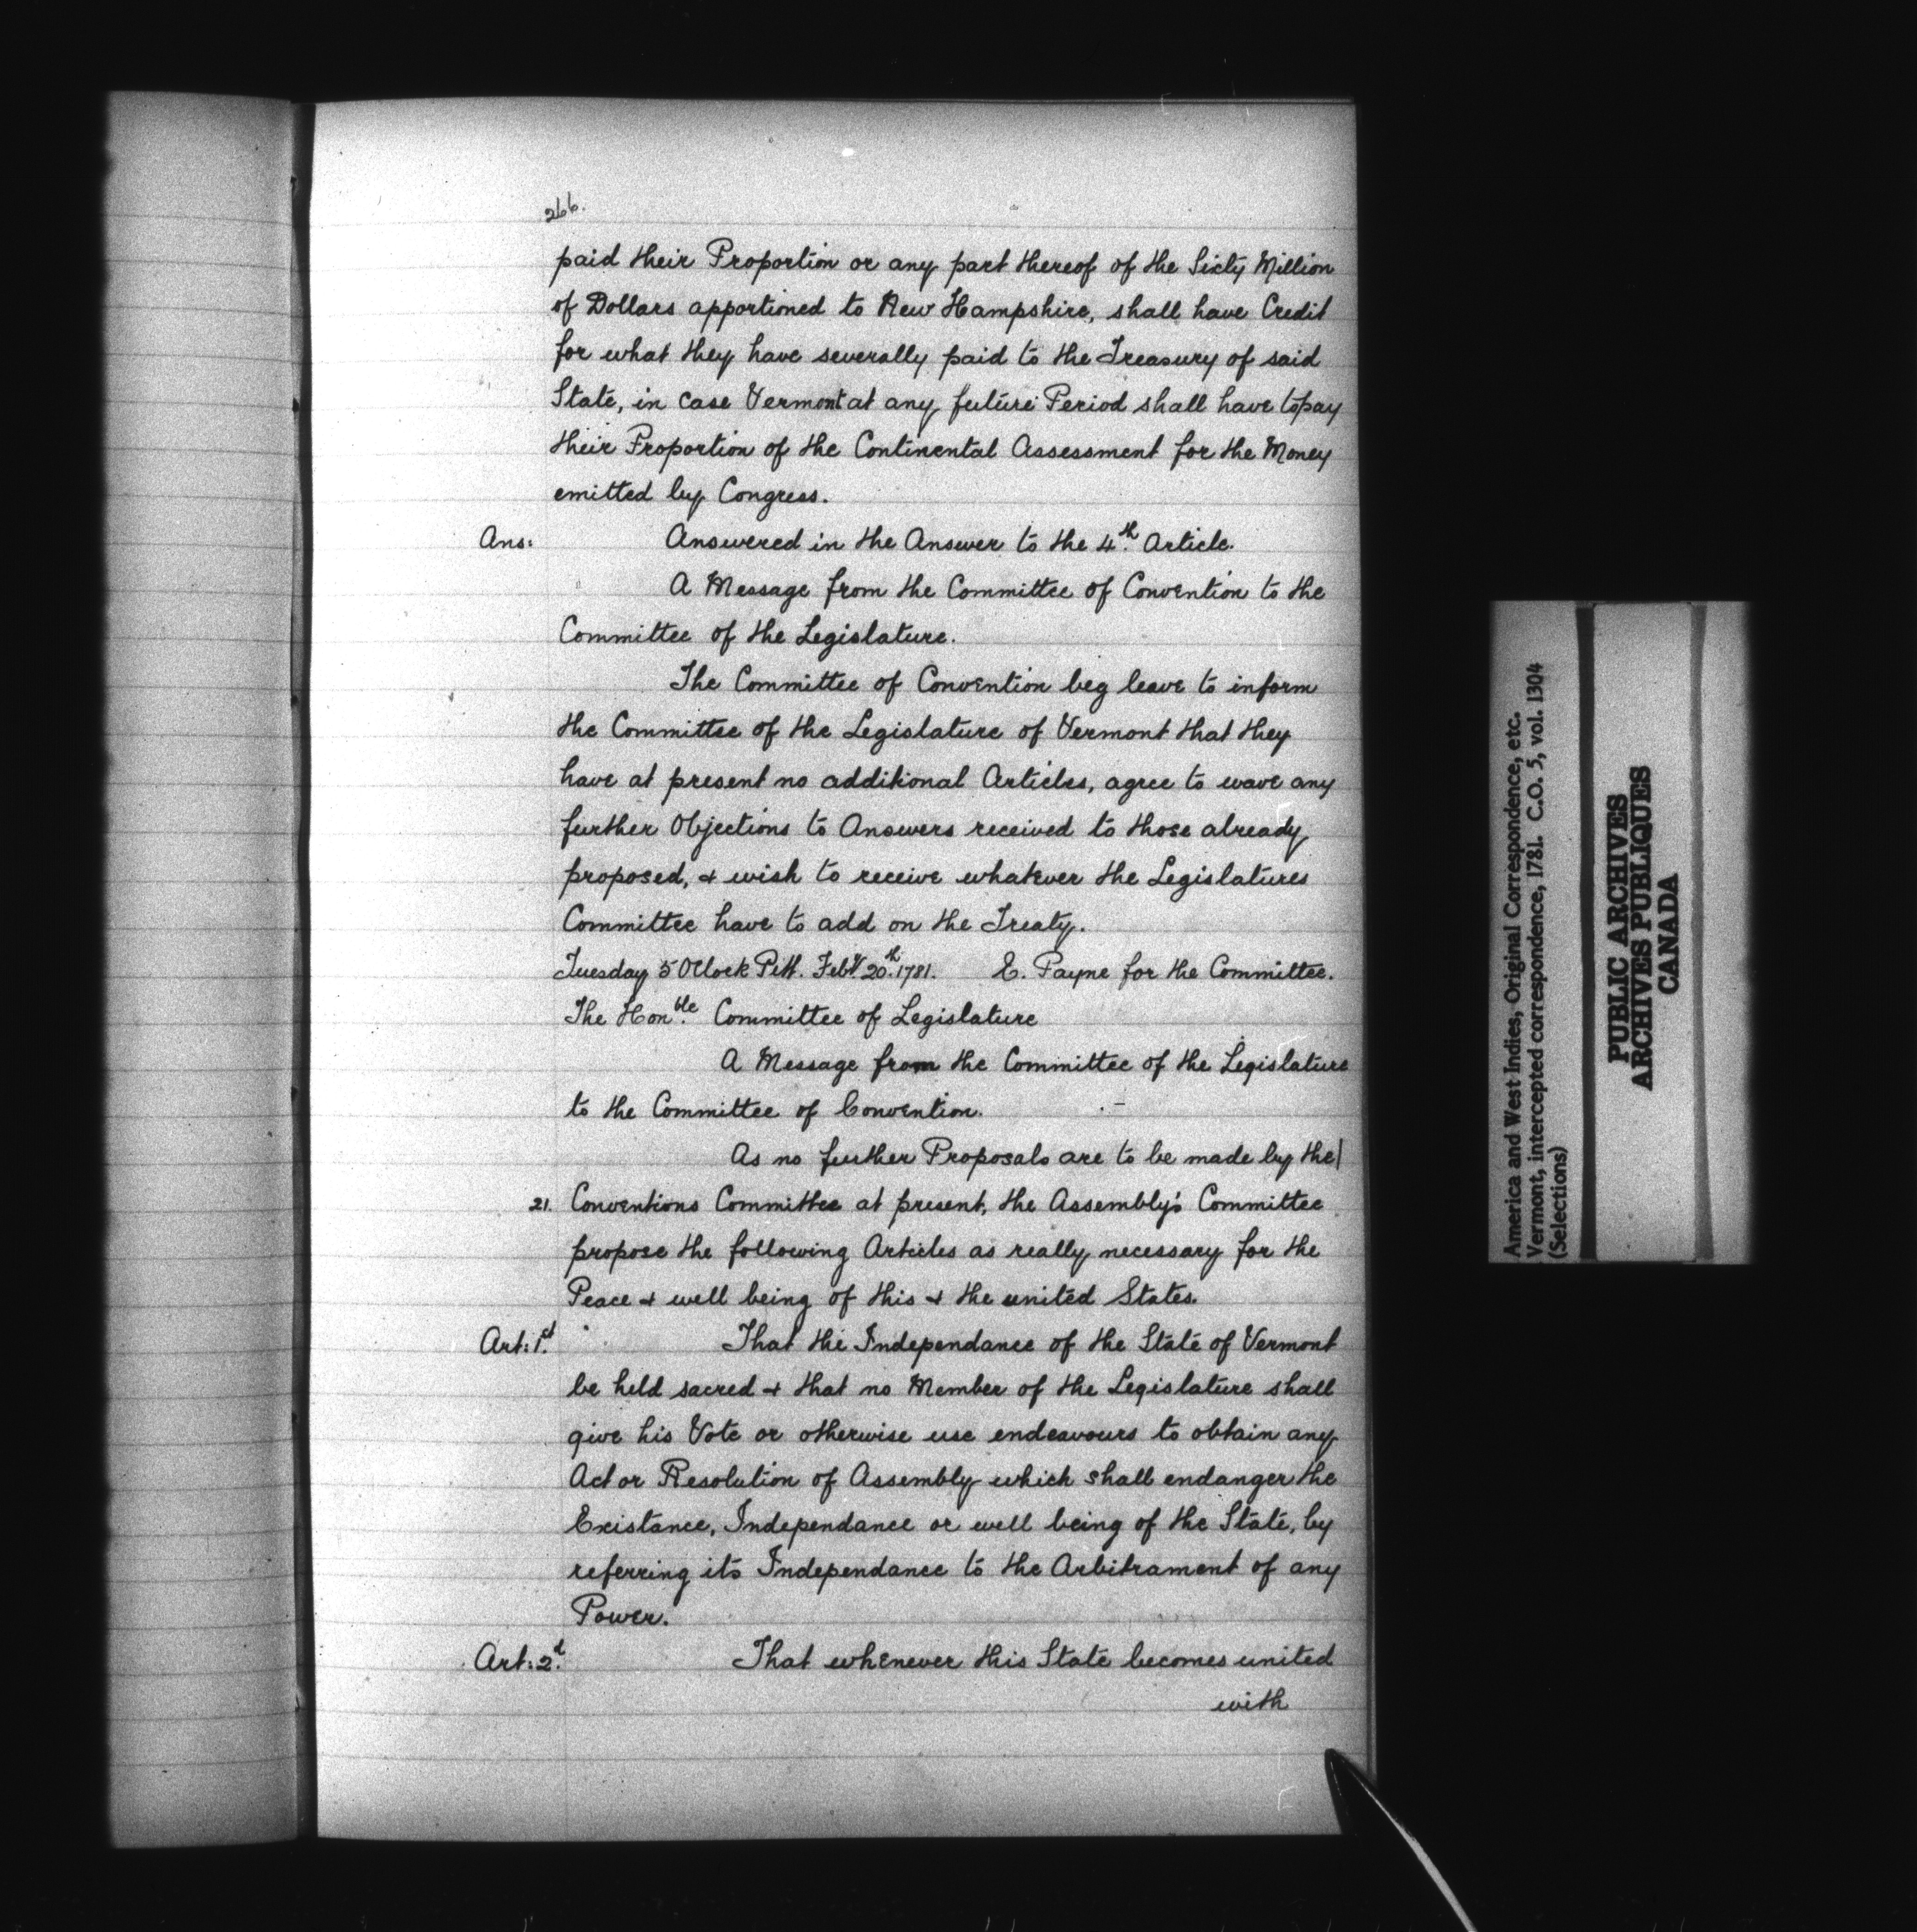 266.
paid their Proportion or any part thereof of the Sixty Million
of Dollars apportioned to New Hampshire, shall have Credit
for what they have severally paid to the Treasury of said
State, in case Vermont at any future Period shall have to pay
their Proportion of the Continental Assessment for the Money
emitted by Congress.
Ans: Answered in the Answer to the 4th. Article.
A Message from the Committee of Convention to the
Committee of the Legislature.
The Committee of Convention beg leave to inform
the Committee of the Legislature of Vermont that they
have at present no additional Articles, agree to wave any
further Objections to Answers received to those already
proposed, & wish to receive whatever the Legislatures
Committee have to add on the Treaty.
Tuesday 5 OClock Feby. 20th. 1781. E. Payne for the Committee.
The Honble. Committee of Legislature
A Message from the Committee of the Legislature
to the Committee of Convention.
As no further Proposals are to be made by the
21. Conventions Committee at present, the Assembly's Committee
propose the following Articles as really necessary for the
Peace & well being of this & the united States.
Art: 1st. That the Independance of the State of Vermont
be held sacred & that no Member of the Legislature shall
give his Vote or otherwise use endeavours to obtain any
Act or Resolution of Assembly which shall endanger the
Existance, Independance or well being of the State, by
referring its Independance to the Arbitrament of any
Power.
Art: 2d. That whenever this State becomes united
with
America and West Indies, Original Correspondence, etc.
Vermont, intercepted correspondence, 1781. C.O. 5, vol. 1304
(Selections)
PUBLIC ARCHIVES
ARCHIVES PUBLIQUES
CANADA